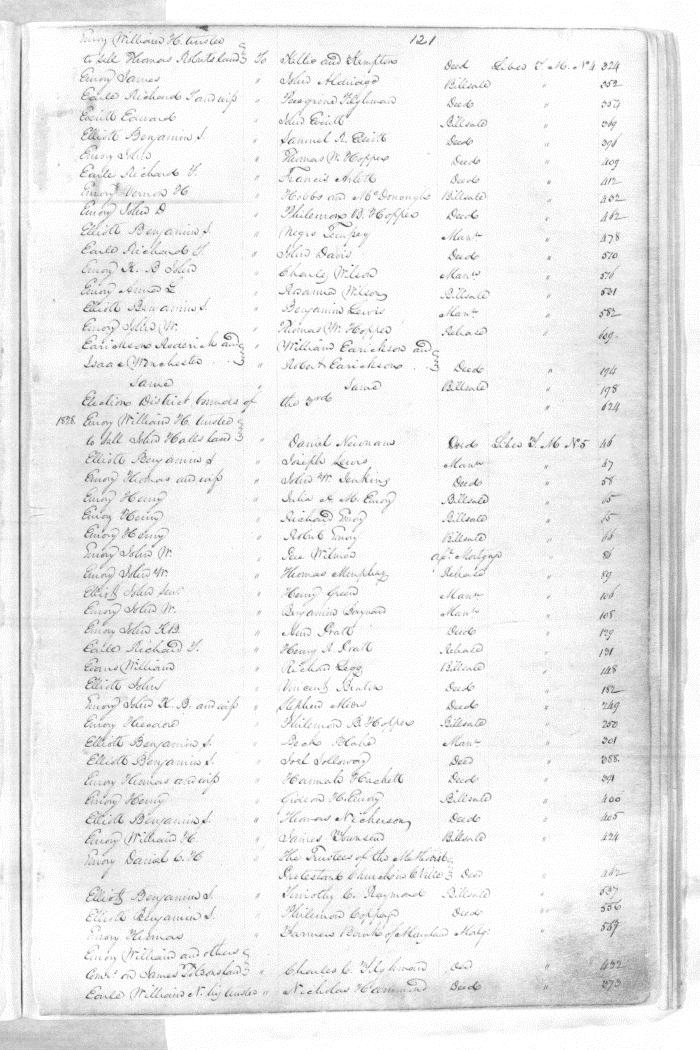 121
Emory William H. trustee
to sell Thomas Roberts land } To Kellie and Kempton Deed Liber T. M. No 4 324
Emory James " John Aldridge Billsale " 352
Earle Richard T and wife " Peregrine Tilghman Deed " 357
Everitt Edward " John Everitt Billsale " 369
Elliott Benjamin S. " Samuel R. Elliott Deed " 396
Emory John " Thomas W. Hopper Deed " 409
Earle Richard T. " Francis Arlett Deed " 412
Emory Vernon H " Hobbs and McDonough Billsale " 432
Emory John D " Philemon B. Hopper Deed " 462
Elliott Benjamin S " Negro Tempey Manr " 478
Earle Richard T. " John Davis Deed " 570
Emory K. B John " Charles Wilson Manr " 576
Emory Anna L " Rosanna Wilson Billsale " 581
Elliott Benjamin S. " Benjamin Lewis Manr " 582
Emory John W. " Thomas W. Hopper Release " 609
Earickson Roderick and William Earickson and
Isaac Winchester } " Robert Earickson } Deed " 194
Same " Same Billsale " 198
Election District bounds of the 3rd " 624
1828 Emory William H. trustee
to sell John Halls land } " Daniel Newnam Deed Liber T. M No 5 46
Elliott Benjamin S " Joseph Lewis Manr " 47
Emory Thomas and wife " John W. Jenkins Deed " 58
Emory Henry " Julia A. M. Emory Billsale " 65
Emory Henry " Richard Emory Billsale " 65
Emory Henry " Robert Emory Billsale " 66
Emory John W. " Wilmer Mortgage " 86
Emory John W. " Thomas Murphey Release " 89
Elliott John " Henry Green Manr " 106
Emory John W. " Benjamin Manr " 108
Emory John K. B. " Pratt Deed " 129
Earle Richard T. " Henry Pratt Release " 131
Evans William " Richard Legg Billsale " 148
Elliott John " Vincent Benton Deed " 182
Emory John K. B. and wife " Stephen Deed " 249
Emory Theodore " Philemon B. Hopper Billsale " 250
Elliott Benjamin S. " Beck Blake Manr " 301
Elliott Benjamin S. " Joel Solloway Deed " 388
Emory Thomas and wife " Hannah Hackett Deed " 391
Emory Henry " Gideon H. Emory Billsale " 400
Elliott Benjamin S. " Thomas Nicherson Deed " 405
Emory William H. " James Townsend Billsale " 424
Emory Daniel C. H " The Trustees of the Methodist
Protestant Church } Deed " 462
Elliott Benjamin S. " Timothy C. Raymond Billsale " 537
Elliott Benjamin S. " Philemon Coppage Deed " 556
Emory Thomas " Farmers Bank of Maryland Motg: " 567
Emory William and others
Comrs on James Tilsons land } " Charles C. Tilghman Deed " 432
Earle William N. by trustee " Nicholas Hammond Deed " 373